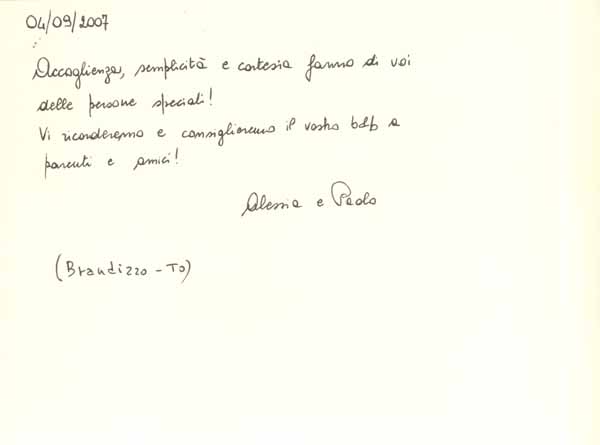 04/09/2007
Accoglienza, semplicità e cortesia fanno di voi
delle persone speciali!
Vi ricorderemo e consiglieremo il vostro b&b a
parenti e amici!
Alessia e Paolo
(Brandizzo - To)